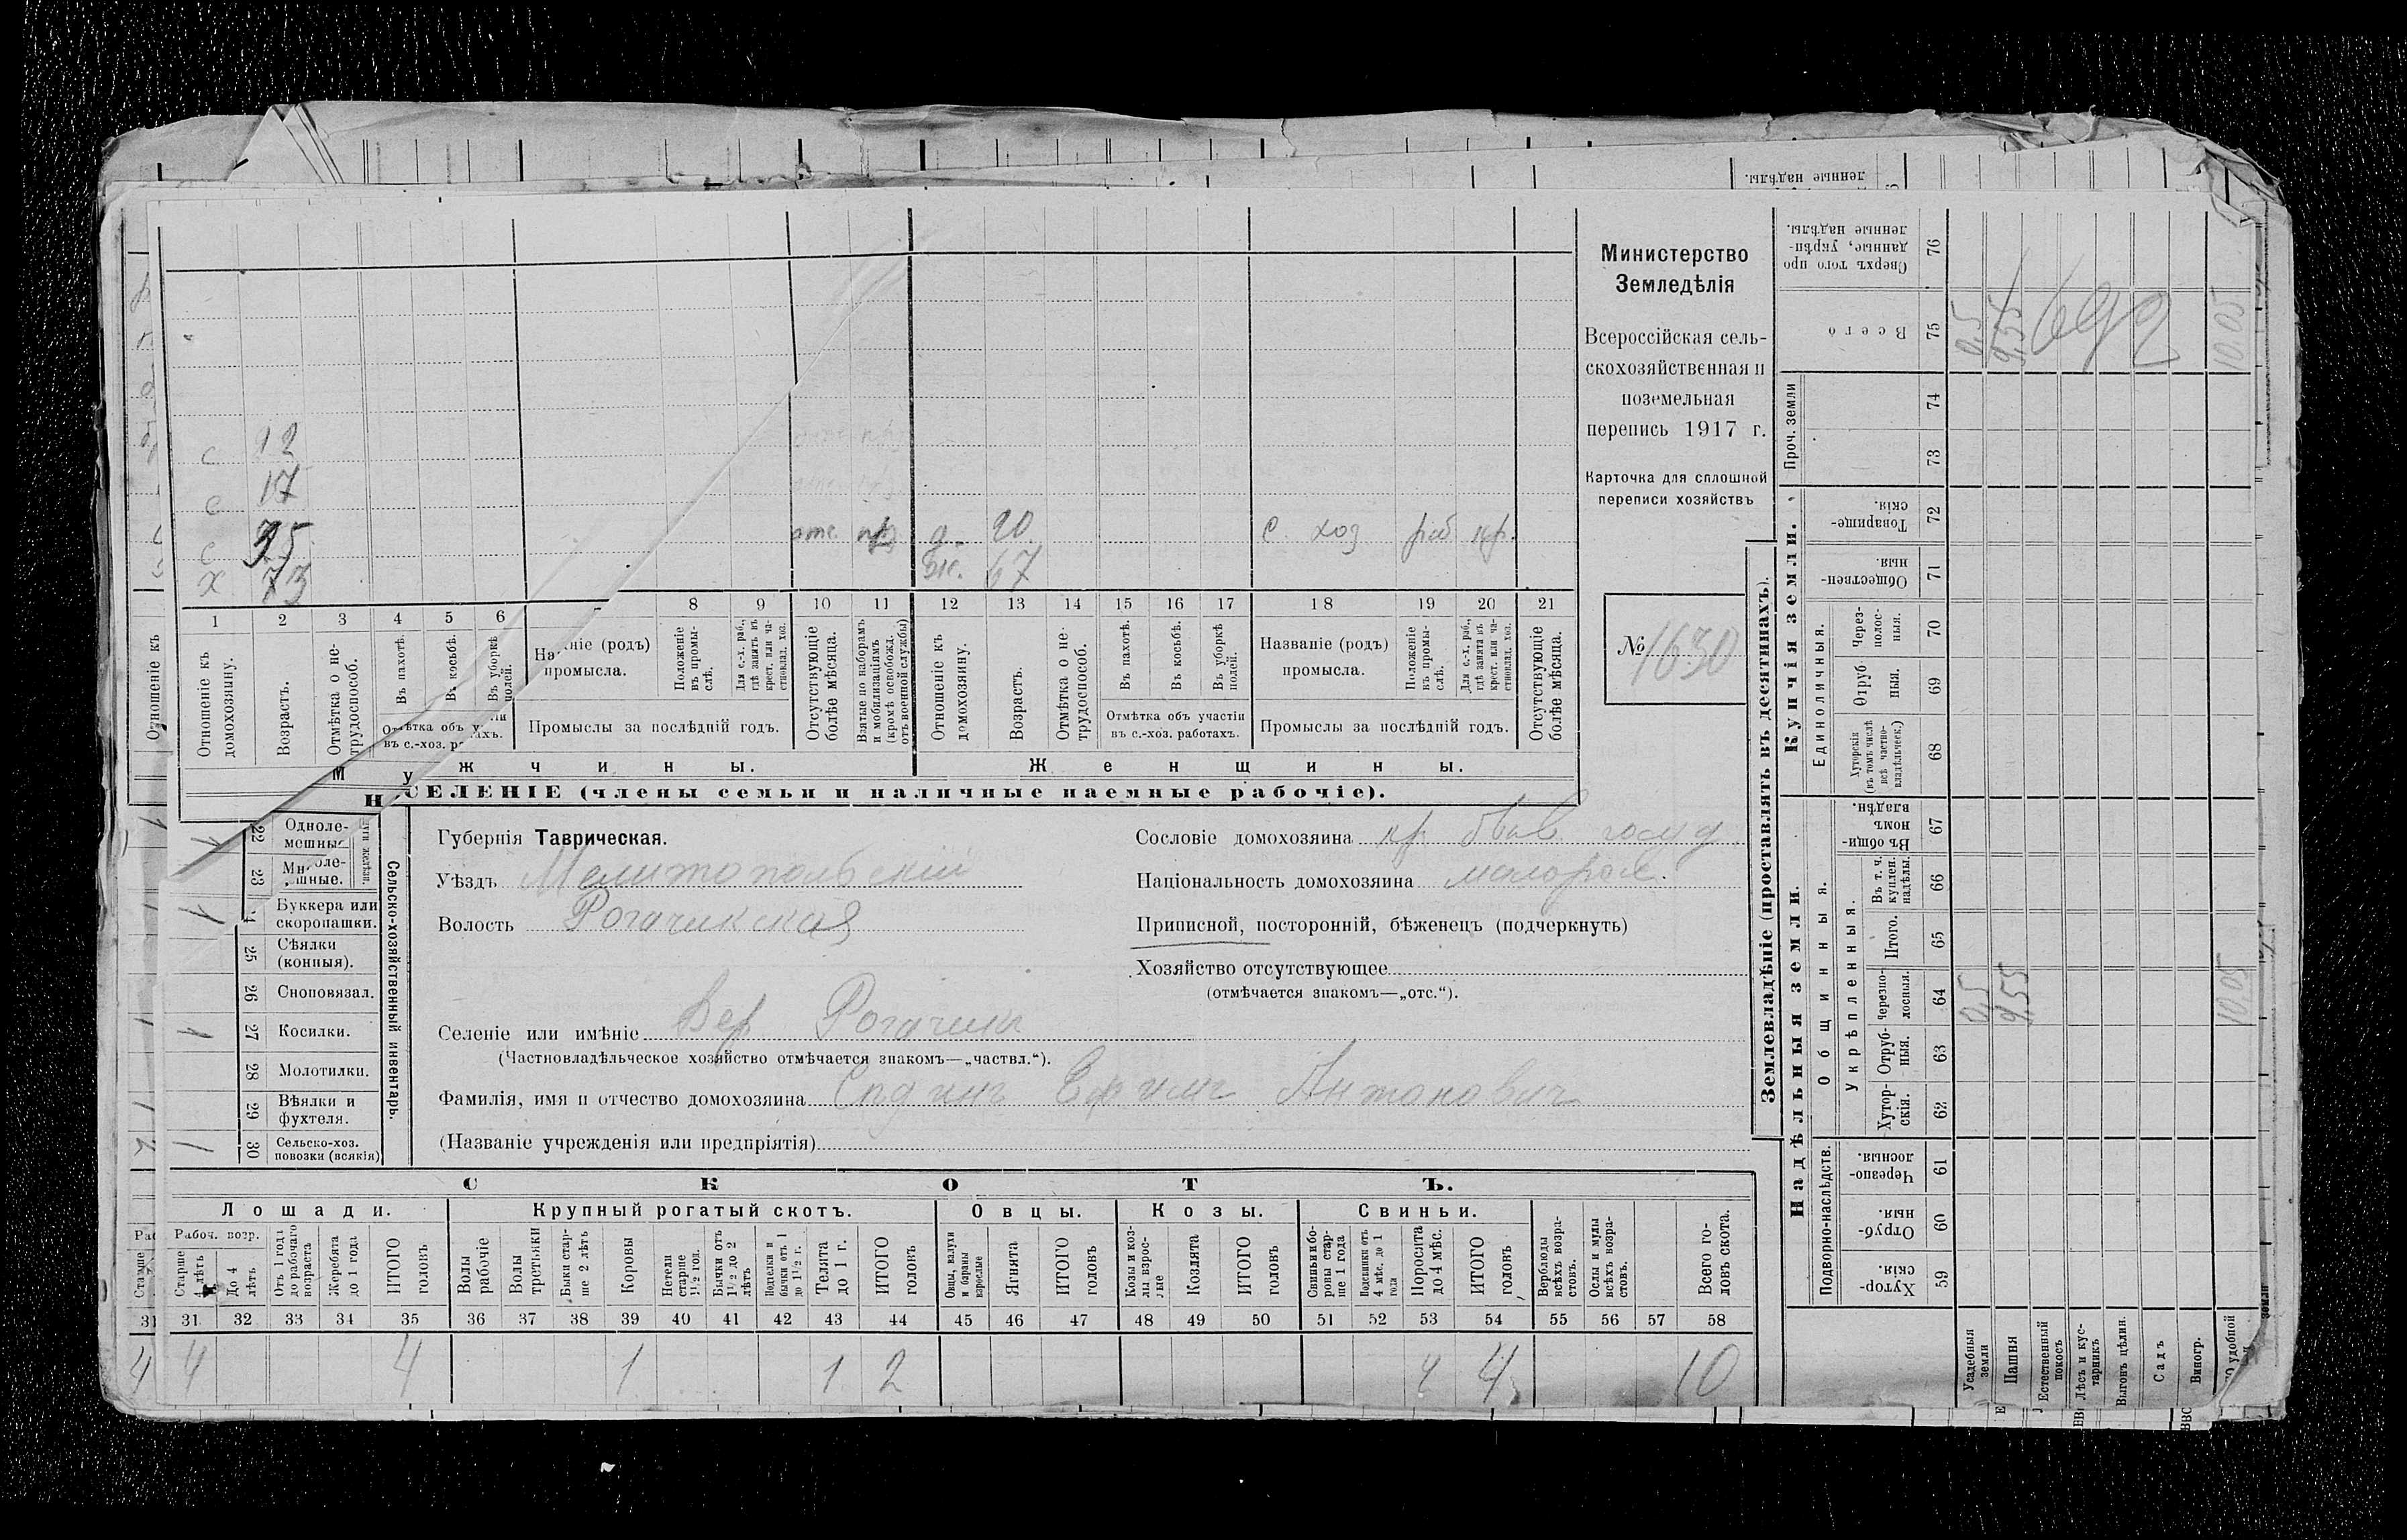 с 12
с 17
с 35 отс. 20 с. хоз раб кр.
х 73 67
1 2 3 4 5 6 8 9 10 11 12 13 14 15 16 17 18 19 20 21
Отношеніе къ домохозяину.
Возрастъ.
Отмѣтка о не-трудоспособ.
Въ пахотѣ.
Въ косьбѣ.
Въ уборкѣ полей.
промысла.
Положеніе въ промы-слѣ.
Для с.-х. раб., гдѣ занятъ въ крест. или ча-стновлад. хоз.
Отсутствующіе болѣе мѣсяца.
Взятые по наборамъ и мобилизаціямъ (кромѣ освобожд. отъ военной службы)
Отношеніе къ домохозяину.
Возрастъ.
Отмѣтка о не-трудоспособ.
Въ пахотѣ.
Въ косьбѣ.
Въ уборкѣ полей.
Названіе (родъ) промысла.
Положеніе въ промы-слѣ.
Для с.-х. раб., гдѣ занятъ въ крест. или ча-стновлад. хоз.
Отсутствующіе болѣе мѣсяца.
Промыслы за послѣдній годъ.
Отмѣтка объ участіи въ с.-хоз. работахъ.
Промыслы за послѣдній годъ.
Мужчины. Женщины.
СЕЛЕНІЕ (члены семьи и наличные наемные рабочіе).
Министерство
Земледѣлія
Всероссійская сель-
скохозяйственная и
поземельная
перепись 1917 г.
Карточка для сплошной
переписи хозяйствъ
№ 1630
Губернія Таврическая.
Уѣздъ Мелитопольскій
Волость Рогачикская
Селеніе или имѣніе Вер Рогачик
(Частновладѣльческое хозяйство отмѣчается знакомъ—„частвл.“).
Фамилія, имя и отчество домохозяина Ефимъ Антонович
(Названіе учрежденія или предпріятія)
Сословіе домохозяина кр. быв. госуд
Національность домохозяина малорос.
Приписной, посторонній, бѣженецъ (подчеркнуть)
Хозяйство отсутствующее
(отмѣчается знакомъ—„отс.“).
Сельско-хозяйственный инвентарь.
22 Одноле-
23
Буккера или скоропашки.
25 Сѣялки (конныя).
26 Сноповязал.
27 Косилки. 1
28 Молотилки.
29 Вѣялки и фухтеля.
30 Сельско-хоз. повозки (всякія) 1
СКОТЪ.
Лошади. Крупный рогатый скотъ. Овцы. Козы. Свиньи.
Рабоч. возр.
Старше 4 лѣтъ
До 4 лѣтъ
Отъ 1 года до рабочаго возраста
Жеребята до 1 года
ИТОГО головъ
Волы рабочіе
Волы третьяки
Быки стар-ше 2 лѣтъ
Коровы
Нетели старше 1½ год.
Бычки отъ 1½ до 2 лѣтъ
Телята до 1 г.
ИТОГО головъ
Овцы, валухи и бараны взрослые
Ягнята
ИТОГО головъ
Козы и коз-лы взрос-лые
Козлята
ИТОГО головъ
Свиньи и бо-ровы стар-ше 1 года
Подсвинки отъ 4 мѣс. до 1 года
Поросята до 4 мѣс.
ИТОГО головъ
Верблюды всѣхъ возра-стовъ.
Ослы и мулы всѣхъ возра-стовъ.
Всего го-ловъ скота.
31 32 33 34 35 36 37 38 39 40 41 42 43 44 45 46 47 48 49 50 51 52 53 54 55 56 57 58
4 4 1 1 2 4 4 10
Землевладѣніе (проставлять въ десятинахъ).
Надѣльныя земли. Купчія земли.
Проч. земли
Подворно-наслѣдств.
Общинныя.
Укрѣпленныя.
Единоличныя.
Хутор-скія. 59
Отруб-ныя. 60
Черезпо-лосныя. 61
Хутор-скія. 62
Отруб-ныя. 63
Черезпо-лосныя. 64
Итого. 65
Въ т. ч. куплен. надѣлы. 66
Въ общи-номъ владѣн. 67
Хуторскія (въ томъ числѣ всѣ частно-владѣльческ.) 68
Отруб ныя. 69
Через-полос-ныя. 70
Обществен-ныя. 71
Товарище-скія. 72
73
74
Всего 75
Сверхъ того про данные, укрѣп-ленные надѣлы. 76
Усадебныя земли 0,5 0,5
Пашня 9,55 9,55
Естественный покосъ
Лѣсъ и кус-тарникъ
Выгонъ цѣлин.
Садъ
Виногр.
удобной 10.05 10.05